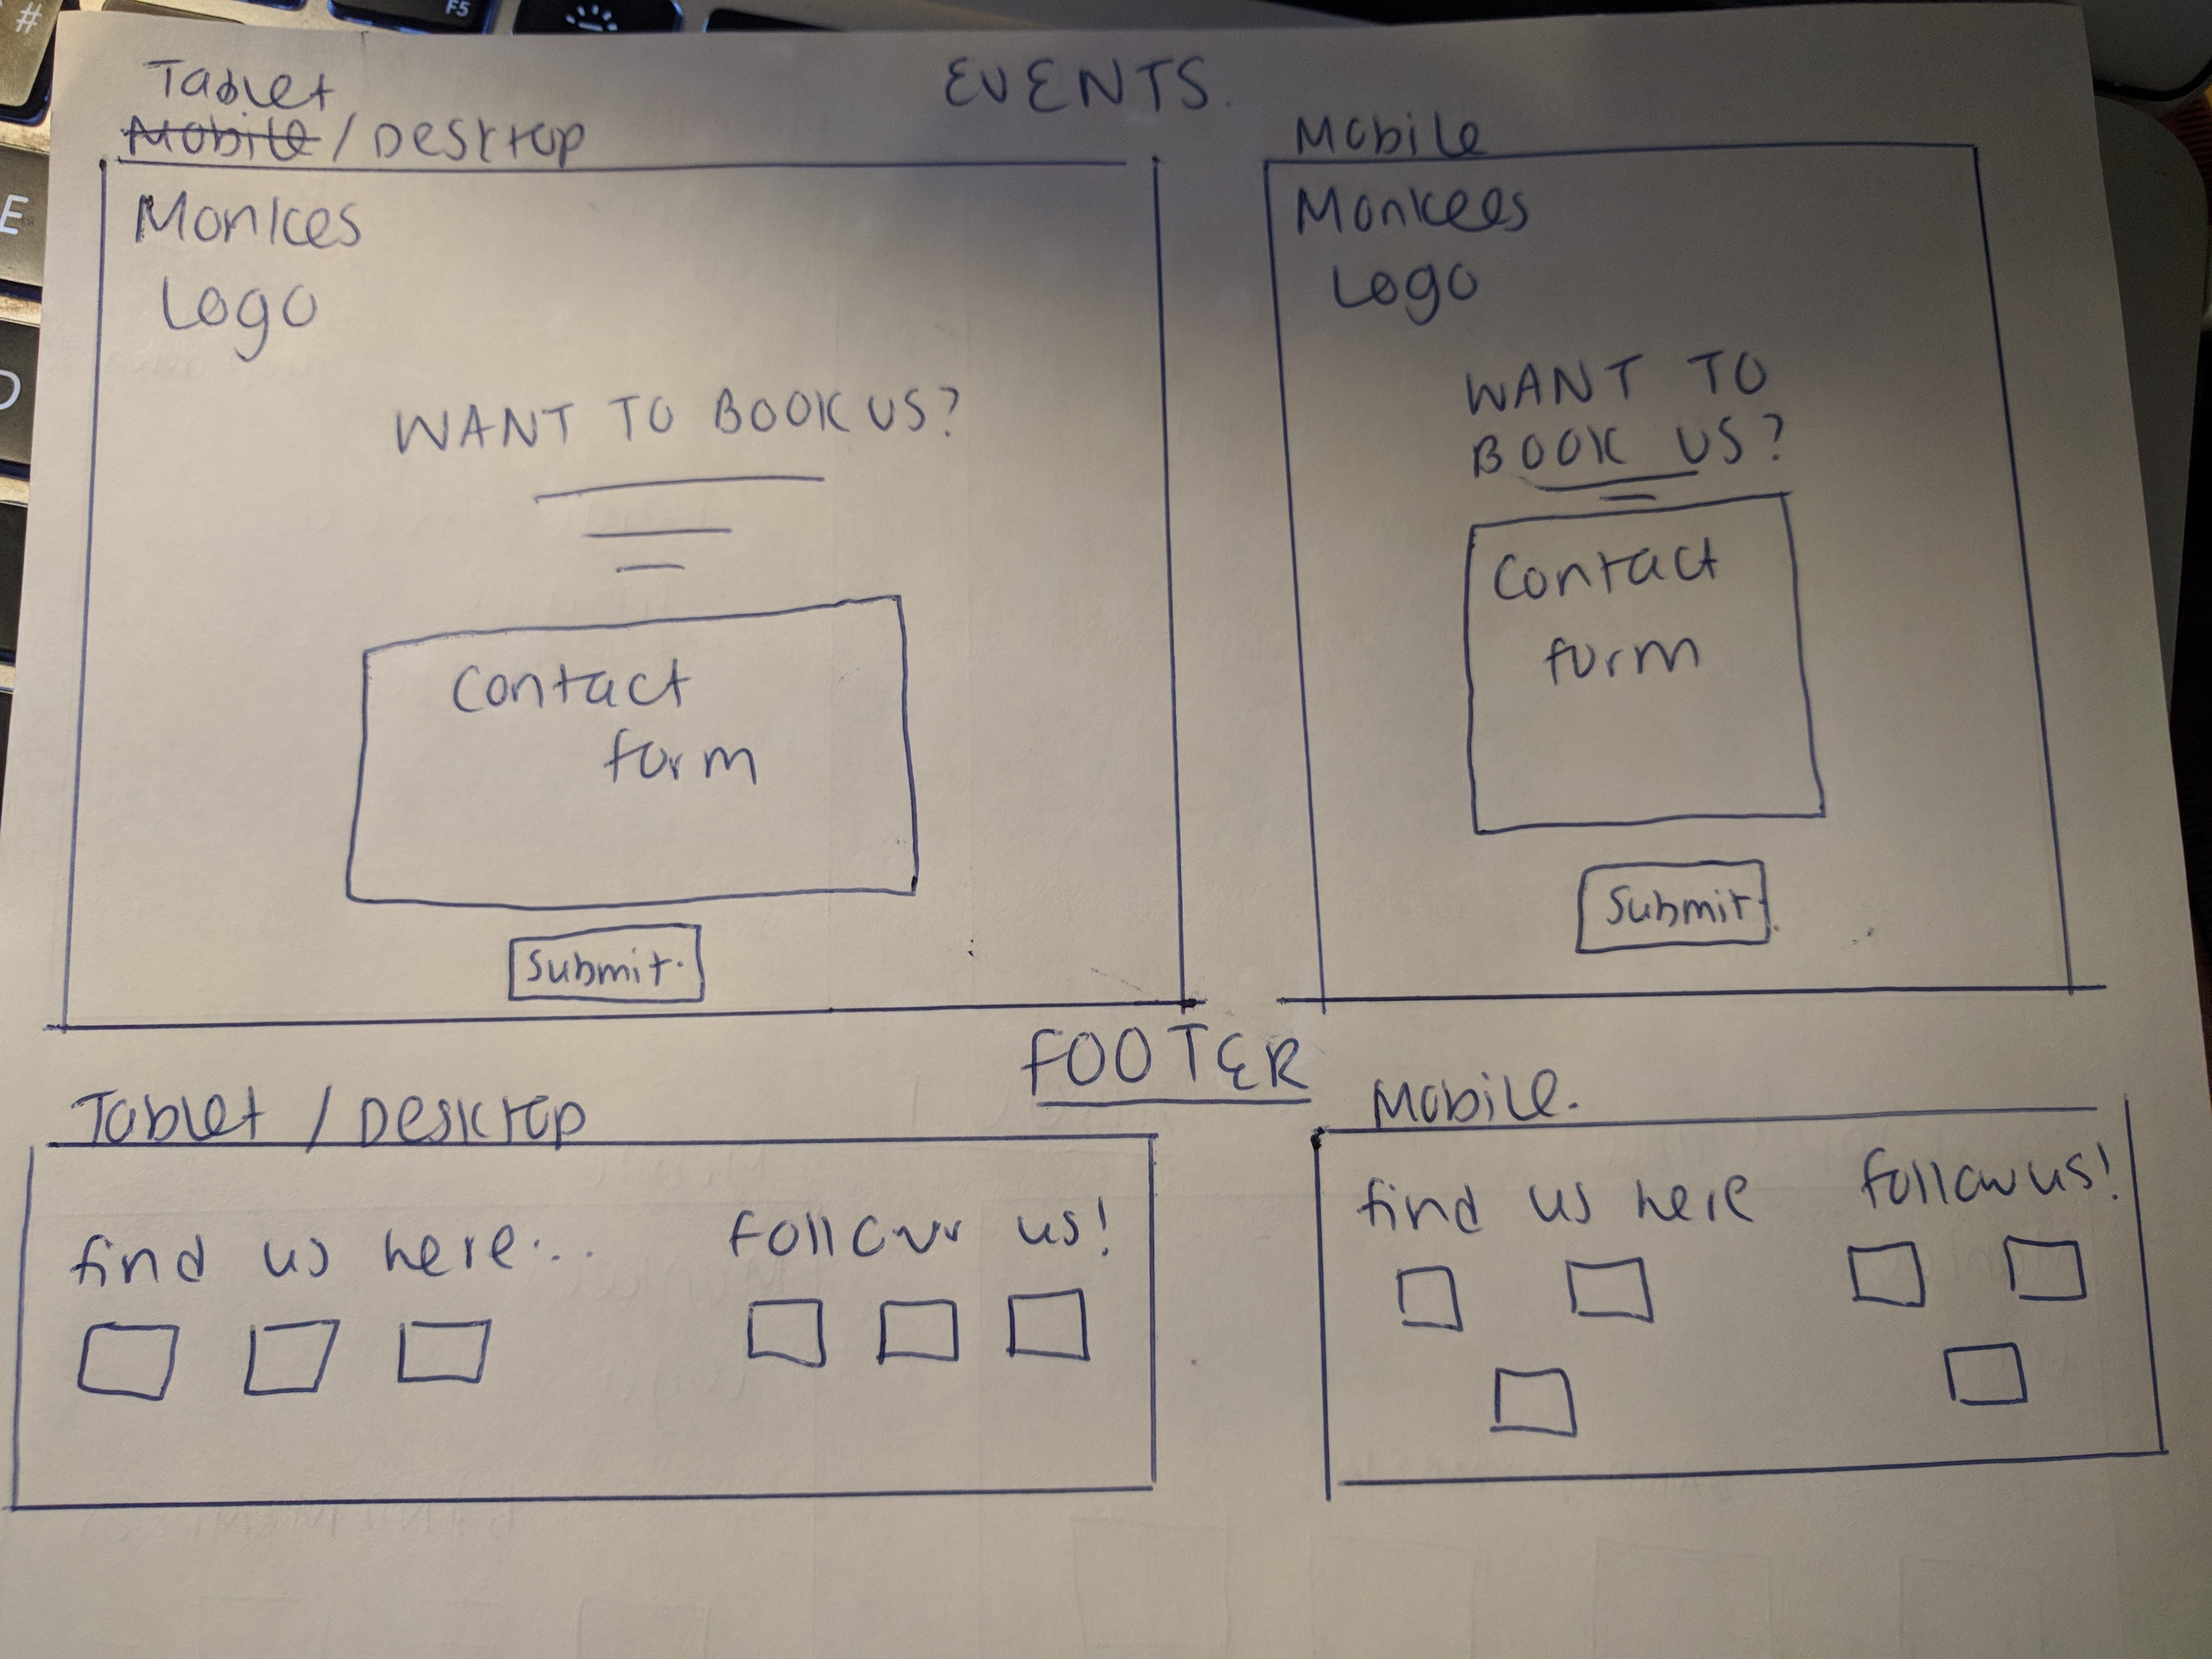 EVENTS.
Tablet
Mobile / Desktop
Monkes
Logo
WANT TO BOOK US?
Contact
form
Submit.
Mobile
Monkees
Logo
WANT TO
BOOK US?
Contact
form
Submit.
FOOTER
Tablet / Desktop
find us here...
follow us!
Mobile.
find us here
follow us!
#
F5
E
D